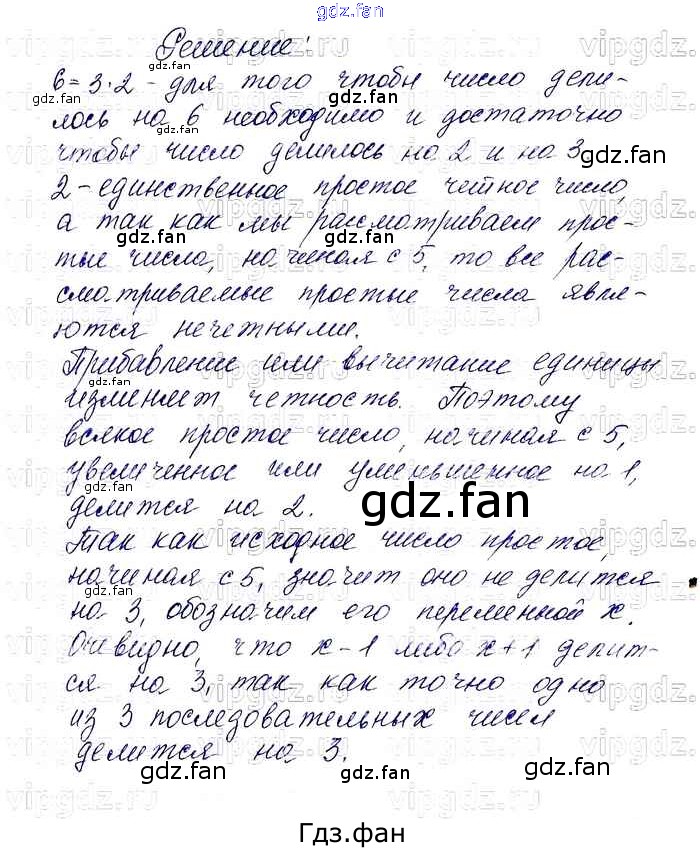 gdz.fan
Решение:
6=3·2 - для того чтобы число дели-
лось на 6 необходимо и достаточно
чтобы число делилось на 2 и на 3
2 - единственное простое четное число,
а так как мы рассматриваем прос-
тые числа, начиная с 5, то все рас-
сматриваемые простые числа явля-
ются нечетными.
Прибавление или вычитание единицы
изменяет четность. Поэтому
всякое простое число, начиная с 5,
увеличенное или уменьшенное на 1,
делится на 2.
Так как исходное число простое,
начиная с 5, значит оно не делится
на 3, обозначим его переменной x.
Очевидно, что x-1 либо x+1 делит-
ся на 3, так как точно одно
из 3 последовательных чисел
делится на 3.
gdz.fan
Гдз.фан